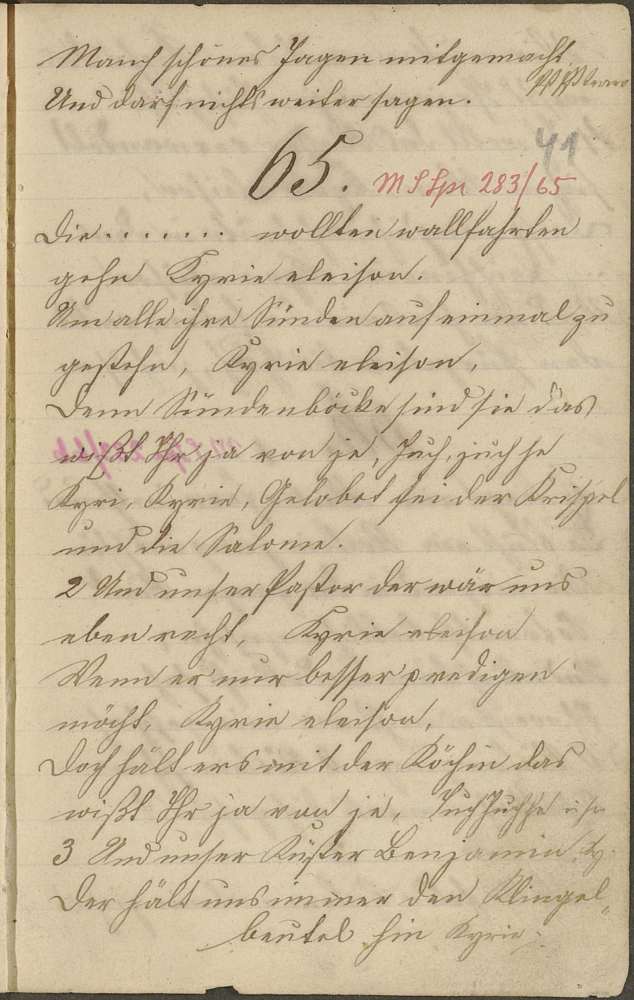 Manch schönes Jagen mitgemacht
Und darf nichts weiter sagen.
41
65. MSSpr 283/65
Die . . . . . . . wollten wallfahrten
gehn Kyrie eleison.
Um alle ihre Sünden auf einmal zu
gestehn, Kyrie eleison,
Denn Sündenböcke sind sie das
wißt Ihr ja von je, Juch, juchhe
Kyri, Kyrie, Gelobet sei der Krispel
und die Salome.
2 Und unser Pastor der wär uns
eben recht, Kyrie eleison
Wenn er nur besser predigen
möcht, Kyrie eleison,
Doch hält ers mit der Köchin das
wißt Ihr ja von je, JuchJuchhe
3 Und unser Küster Benjamin, K.
Der hält uns immer den Klingel„
beutel hin Kyrie